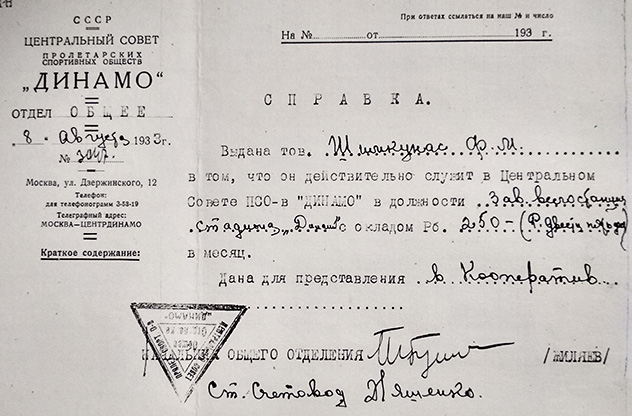 СССР
ЦЕНТРАЛЬНЫЙ СОВЕТ
ПРОЛЕТАРСКИХ
СПОРТИВНЫХ ОБЩЕСТВ
„ДИНАМО“
ОТДЕЛ ОБЩЕЕ
8 - Августа 1933г.
№ 3047.
Москва, ул. Дзержинского, 12
Телефон:
для телефонограмм 3-53-19
Телеграфный адрес:
МОСКВА—ЦЕНТРДИНАМО
Краткое содержание:
При ответах ссылаться на наш № и число
На № от 193 г.
СПРАВКА.
Выдана тов. Шимкунас Ф. М.
в том, что он действительно служит в Центральном
Совете ПСО-в "ДИНАМО" в должности Зав.
стадиона „Динамо" с окладом Рб. 250- (Р. двести
в месяц.
Дана для представления в Кооператив
НАЧАЛЬНИК ОБЩЕГО ОТДЕЛЕНИЯ /ЖИЛЯЕВ/
Ст. Счетовод Ященко.
"ДИНАМО"